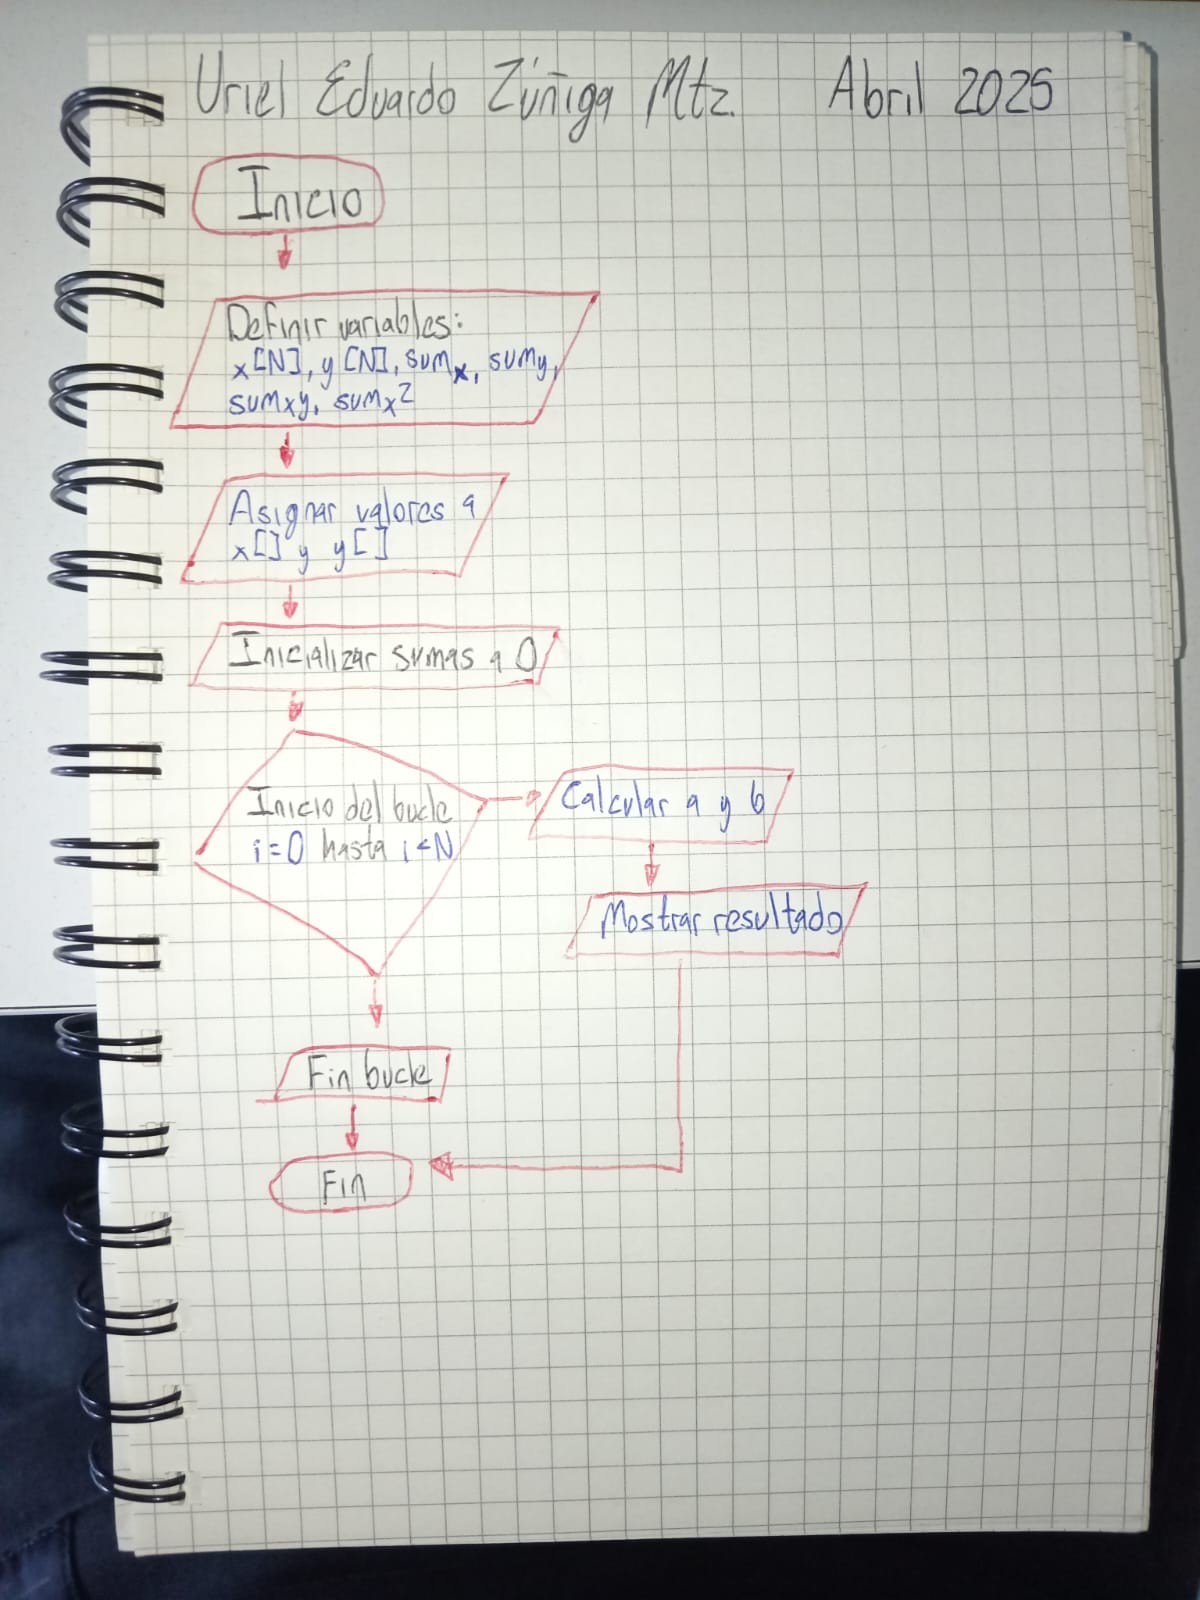 Uriel Eduardo Zúñiga Mtz. Abril 2025
Inicio
Definir variables:
x[N], y[N], sumx, sumy,
sumxy, sumx2
Asignar valores a
x[] y y[]
Inicializar sumas a 0
Inicio del bucle
i=0 hasta i<N
Calcular a y b
Mostrar resultado
Fin bucle
Fin